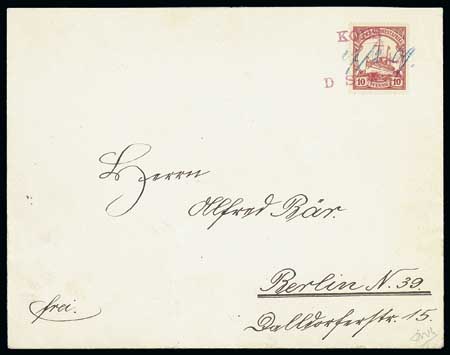 10 10
PFENNIG
Herrn
Alfred Bär.
Berlin N. 39.
frei.
Dalldorferstr. 15.